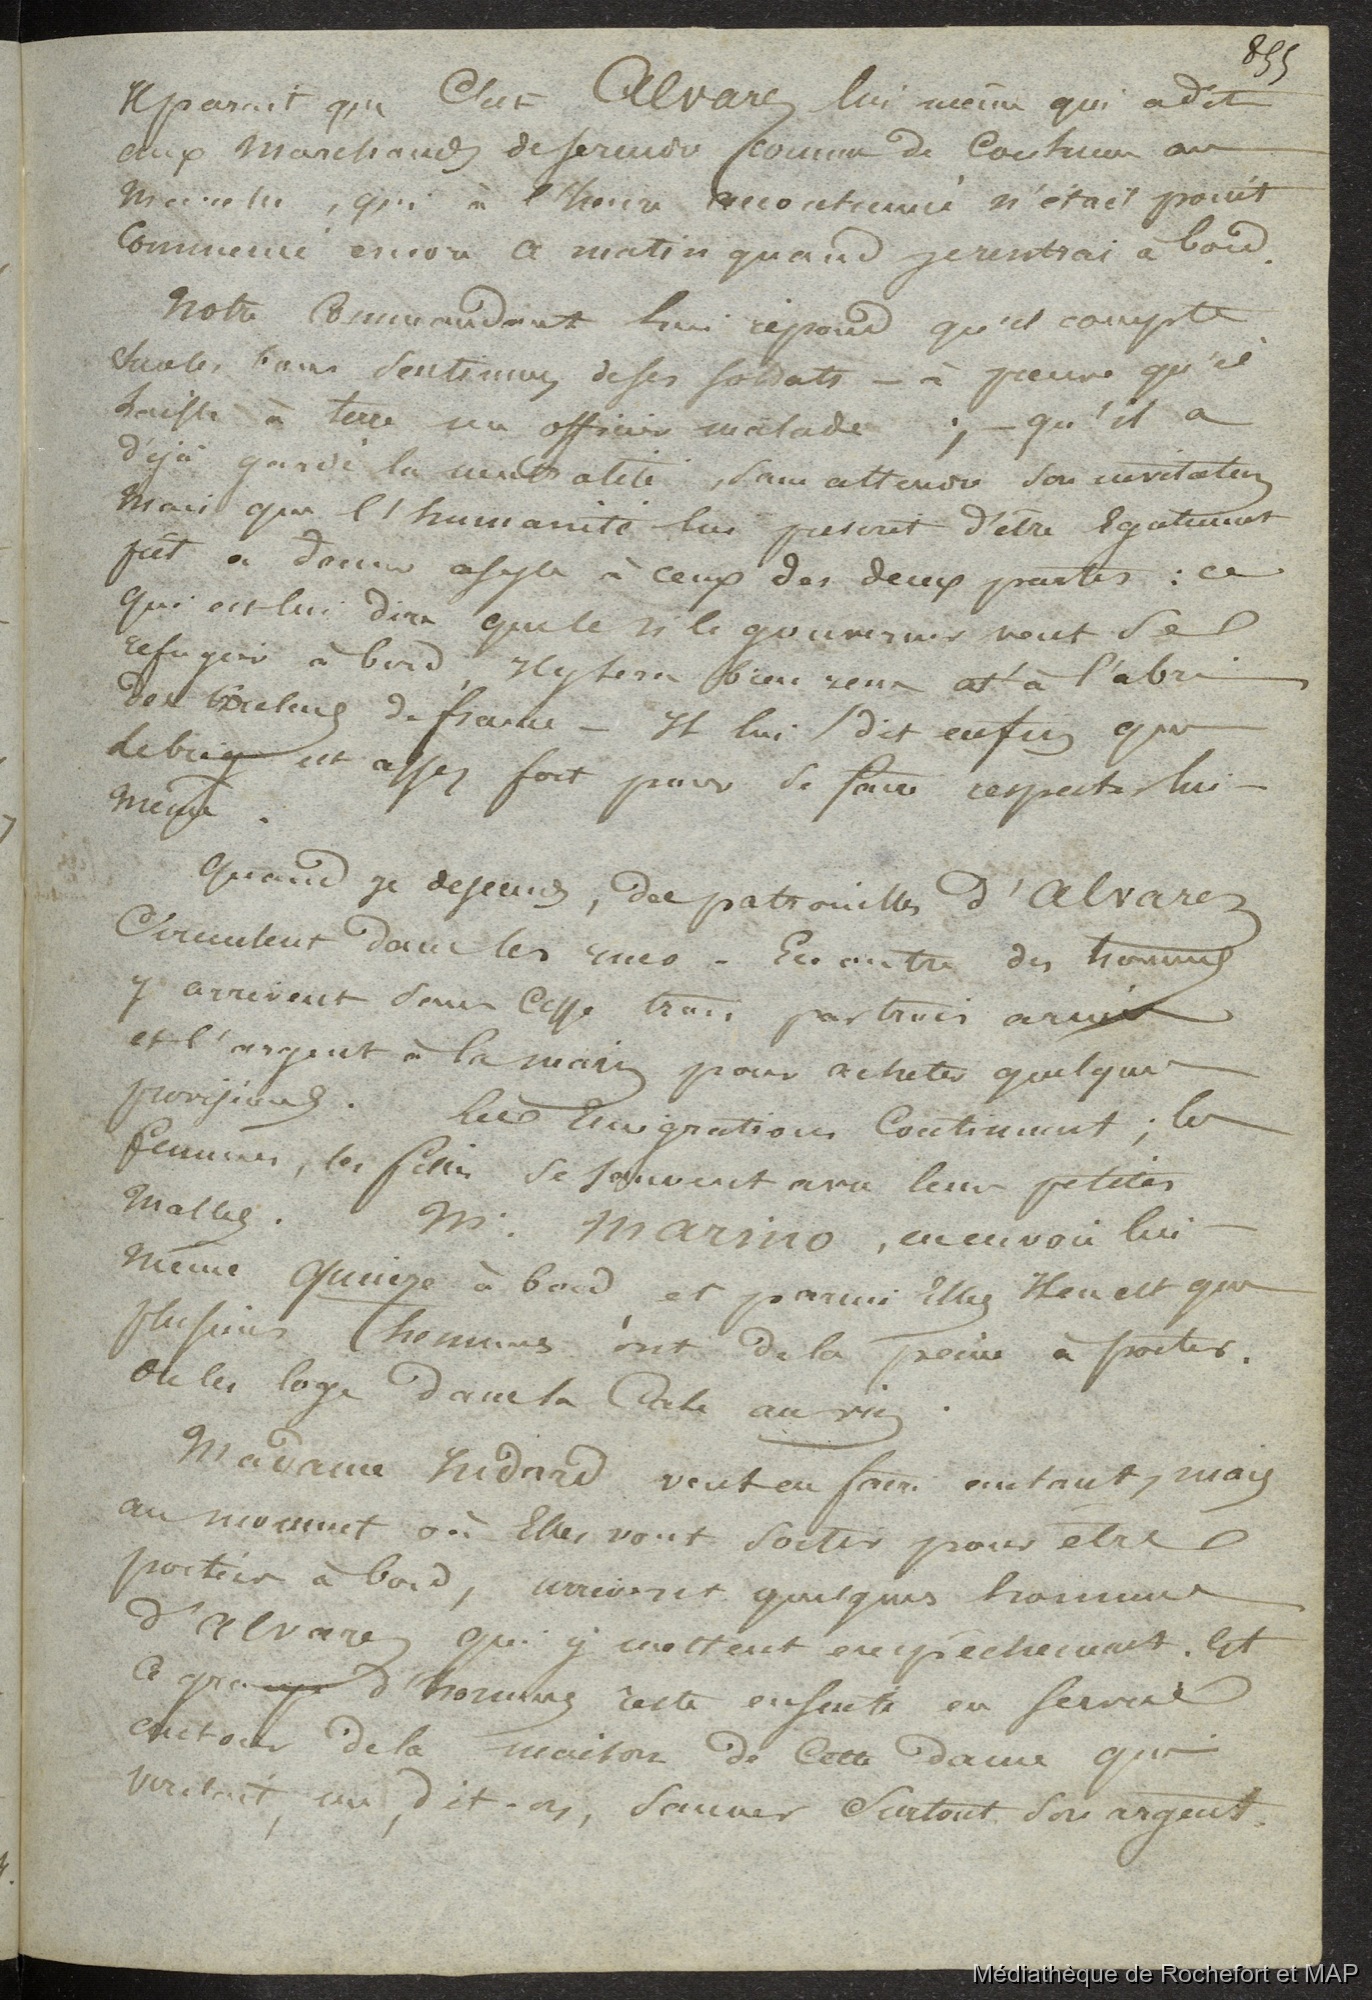 855
Il parait que C'est Alvarez lui même qui a dit
aux Marchands de se rendre comme de Coutume au
Marché, qui à l'heure accoutumée n'était point
Commencé encore ce matin quand je rentrai à bord.
Notre Commandant lui répond qu'il compte
sur les bons Sentimens de ses soldats – à preuve qu'il
laisse à terre un officier malade ; – qu'il a
déjà gardé la neutralité, sans attendre son invitation
Mais que l'humanité lui prescrit d'être Egalement
prêt à donner asyle à ceux des deux partis : ce
qui est lui dire que le si le gouverneur veut se
refugier à bord, il y sera bien reçu et à l'abri
des couleurs de france – Il lui dit enfin que
le brig est assez fort pour se faire respecter lui-
même.
Quand je descends, des patrouilles d'Alvarez
Circulent dans les rues – En outre des hommes
y arrivent sans Cesse trois par trois armés
et l'argent à la main pour acheter quelques
provisions. Les Emigrations Continuent ; les
femmes, les filles se sauvent avec leurs petites
Malles. Mr. Marino, en envoie lui-
même Quinze à bord, et parmi Elles Il en est que
plusieurs hommes ont de la peine à porter.
On les loge dans la Cale au vin.
Madame Indard veut en faire autant, mais
au moment où Elles vont sortir pour être
portées à bord, arrivent quelques hommes
d'Alvarez qui y mettent empêchement. Et
ce groupe d'hommes reste ensuite en service
autour de la maison de Cette dame qui
voulait, dit-on, sauver Surtout son argent.
Médiathèque de Rochefort et MAP